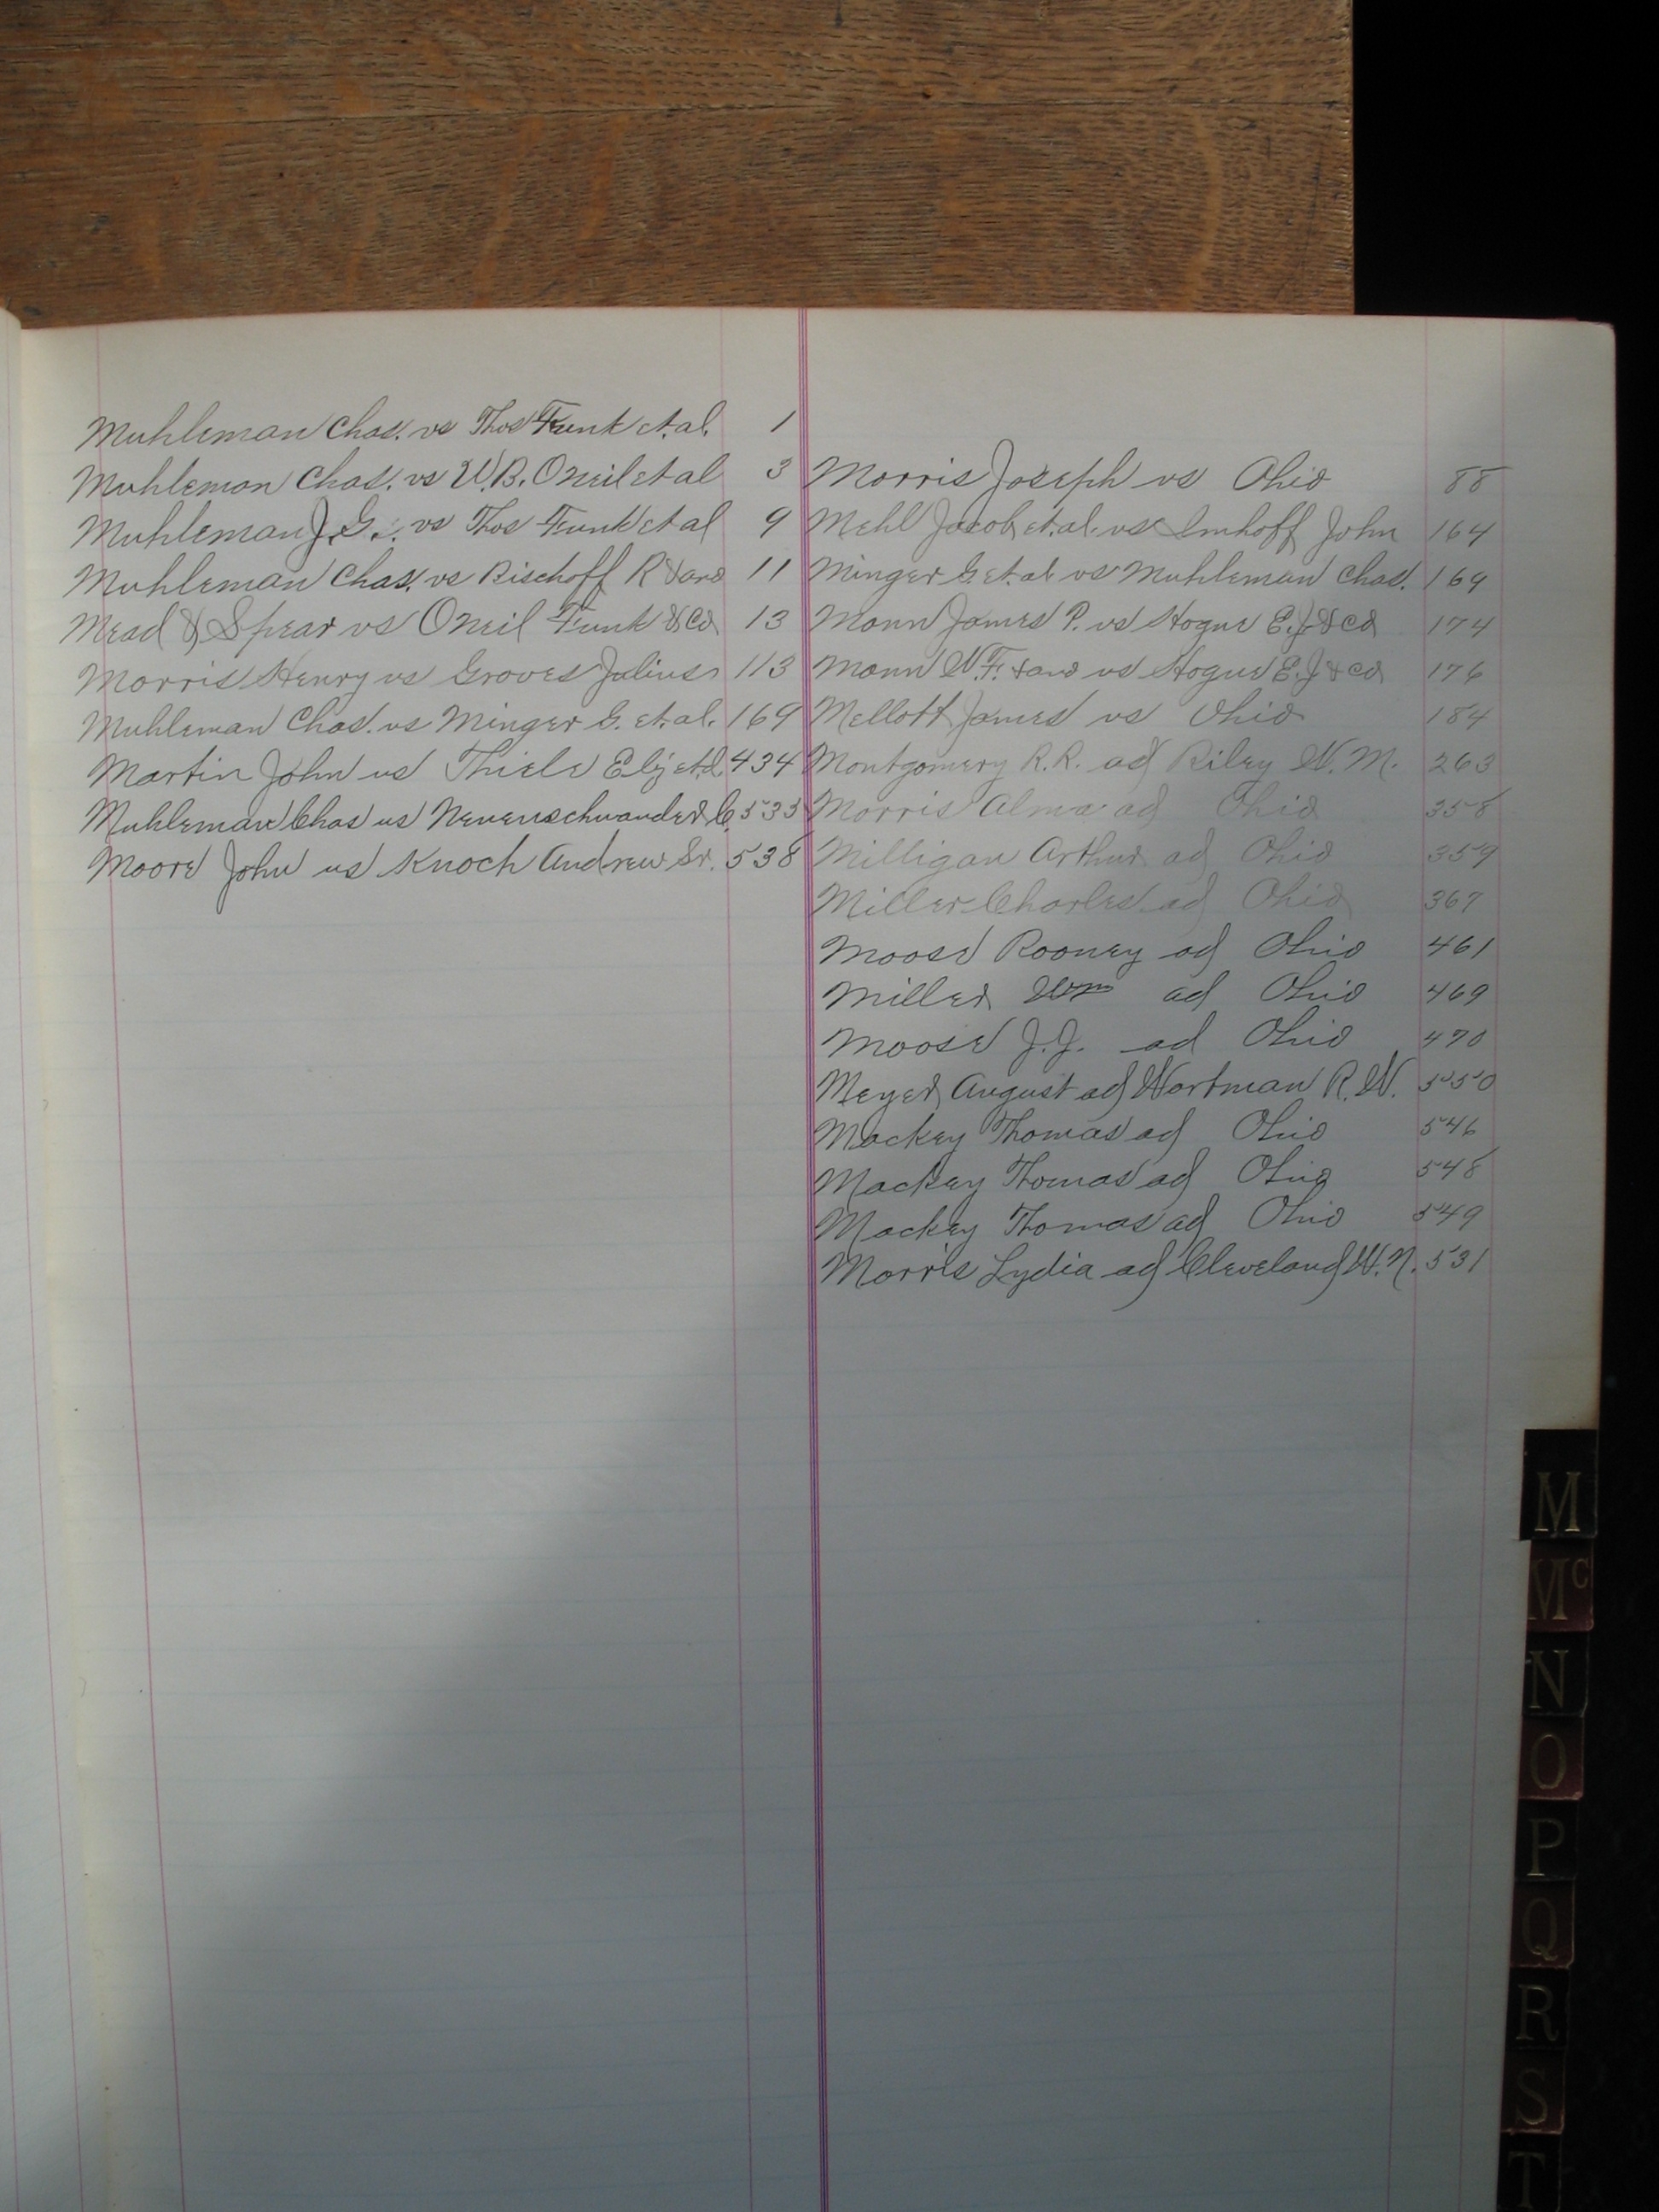 Muhleman Chas. vs Thos Funk et.al. 1
Muhleman Chas. vs W.B. Oneil et al 3
Muhleman J.G. vs Thos Funk et al 9
Muhleman Chas. vs Bischoff R 11
Mead & Spear vs Oneil Funk & Co 13
Morris Henry vs Groves Julius 113
Muhleman Chas. vs Minger G. et.al. 169
Martin John vs Thiele Eliz et.al. 434
Muhleman Chas vs Neuenschwander C. 533
Moore John vs Knoch Andrew Sr. 538
Morris Joseph vs Ohio 88
Mehl Jacob et.al. vs Imhoff John 164
Minger G. et.al. vs Muhleman Chas. 169
Mann James P. vs Hogue E.J. & Co 174
Mann W.F. vs Hogue E.J. & Co 176
Mellott James vs Ohio 184
Montgomery R.R. ad Riley W.M. 263
Morris Alma ad Ohio 358
Milligan Arthur ad Ohio 359
Miller Charles ad Ohio 367
Moose Rooney ad Ohio 461
Miller Wm ad Ohio 469
Moose J.J. ad Ohio 470
Meyer August ad Wortman R.W. 550
Mackey Thomas ad Ohio 546
Mackey Thomas ad Ohio 548
Mackey Thomas ad Ohio 549
Morris Lydia ad Cleveland W.N. 531
M
Mc
N
O
P
Q
R
S
T